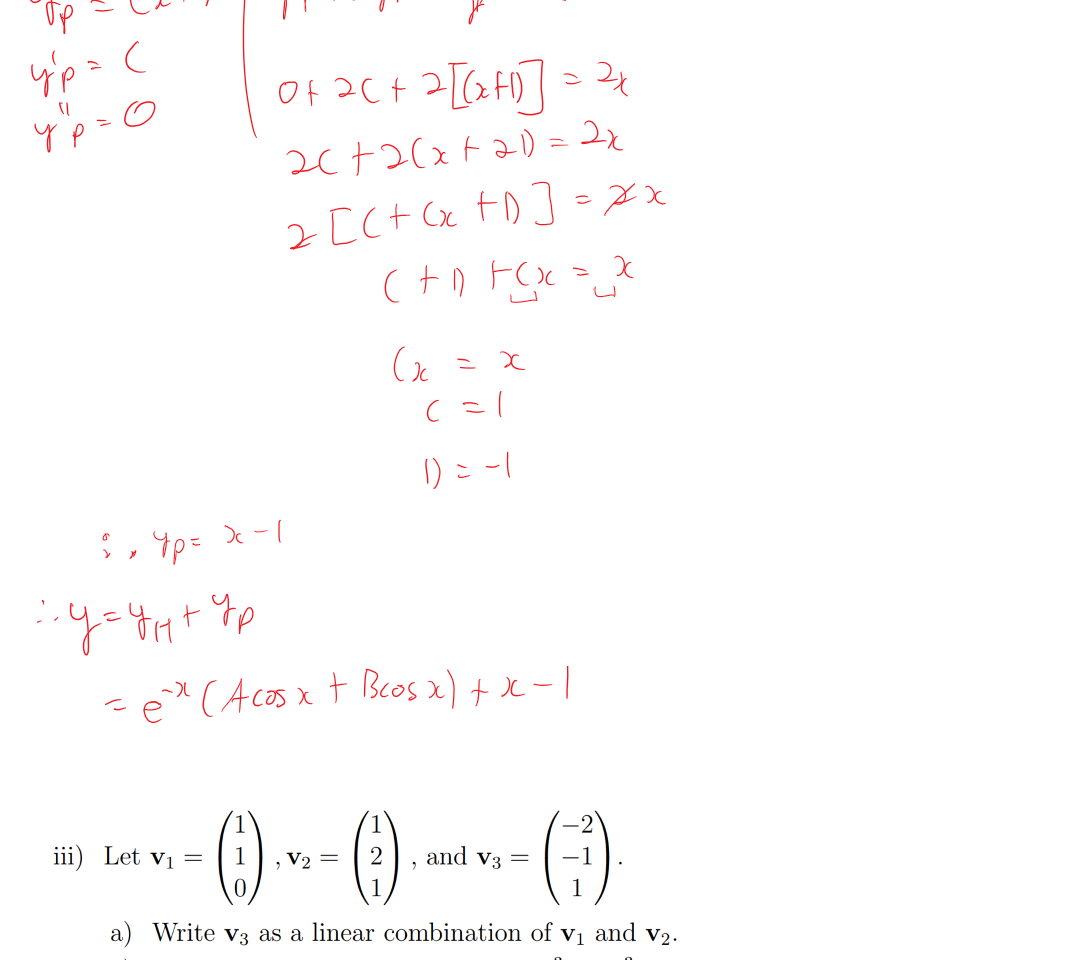 y'p = C
y''p = 0
0 + 2C + 2[Cx+D] = 2x
2C + 2Cx + 2D = 2x
2[C + Cx + D] = 2x
C + D + Cx = x
Cx = x
C = 1
D = -1
∴ yp = x - 1
∴ y = yH + yp
= e^-x (A cos x + B cos x) + x - 1
iii) Let v₁ = (1 1 0), v₂ = (1 2 1), and v₃ = (−2 −1 1).
a) Write v₃ as a linear combination of v₁ and v₂.